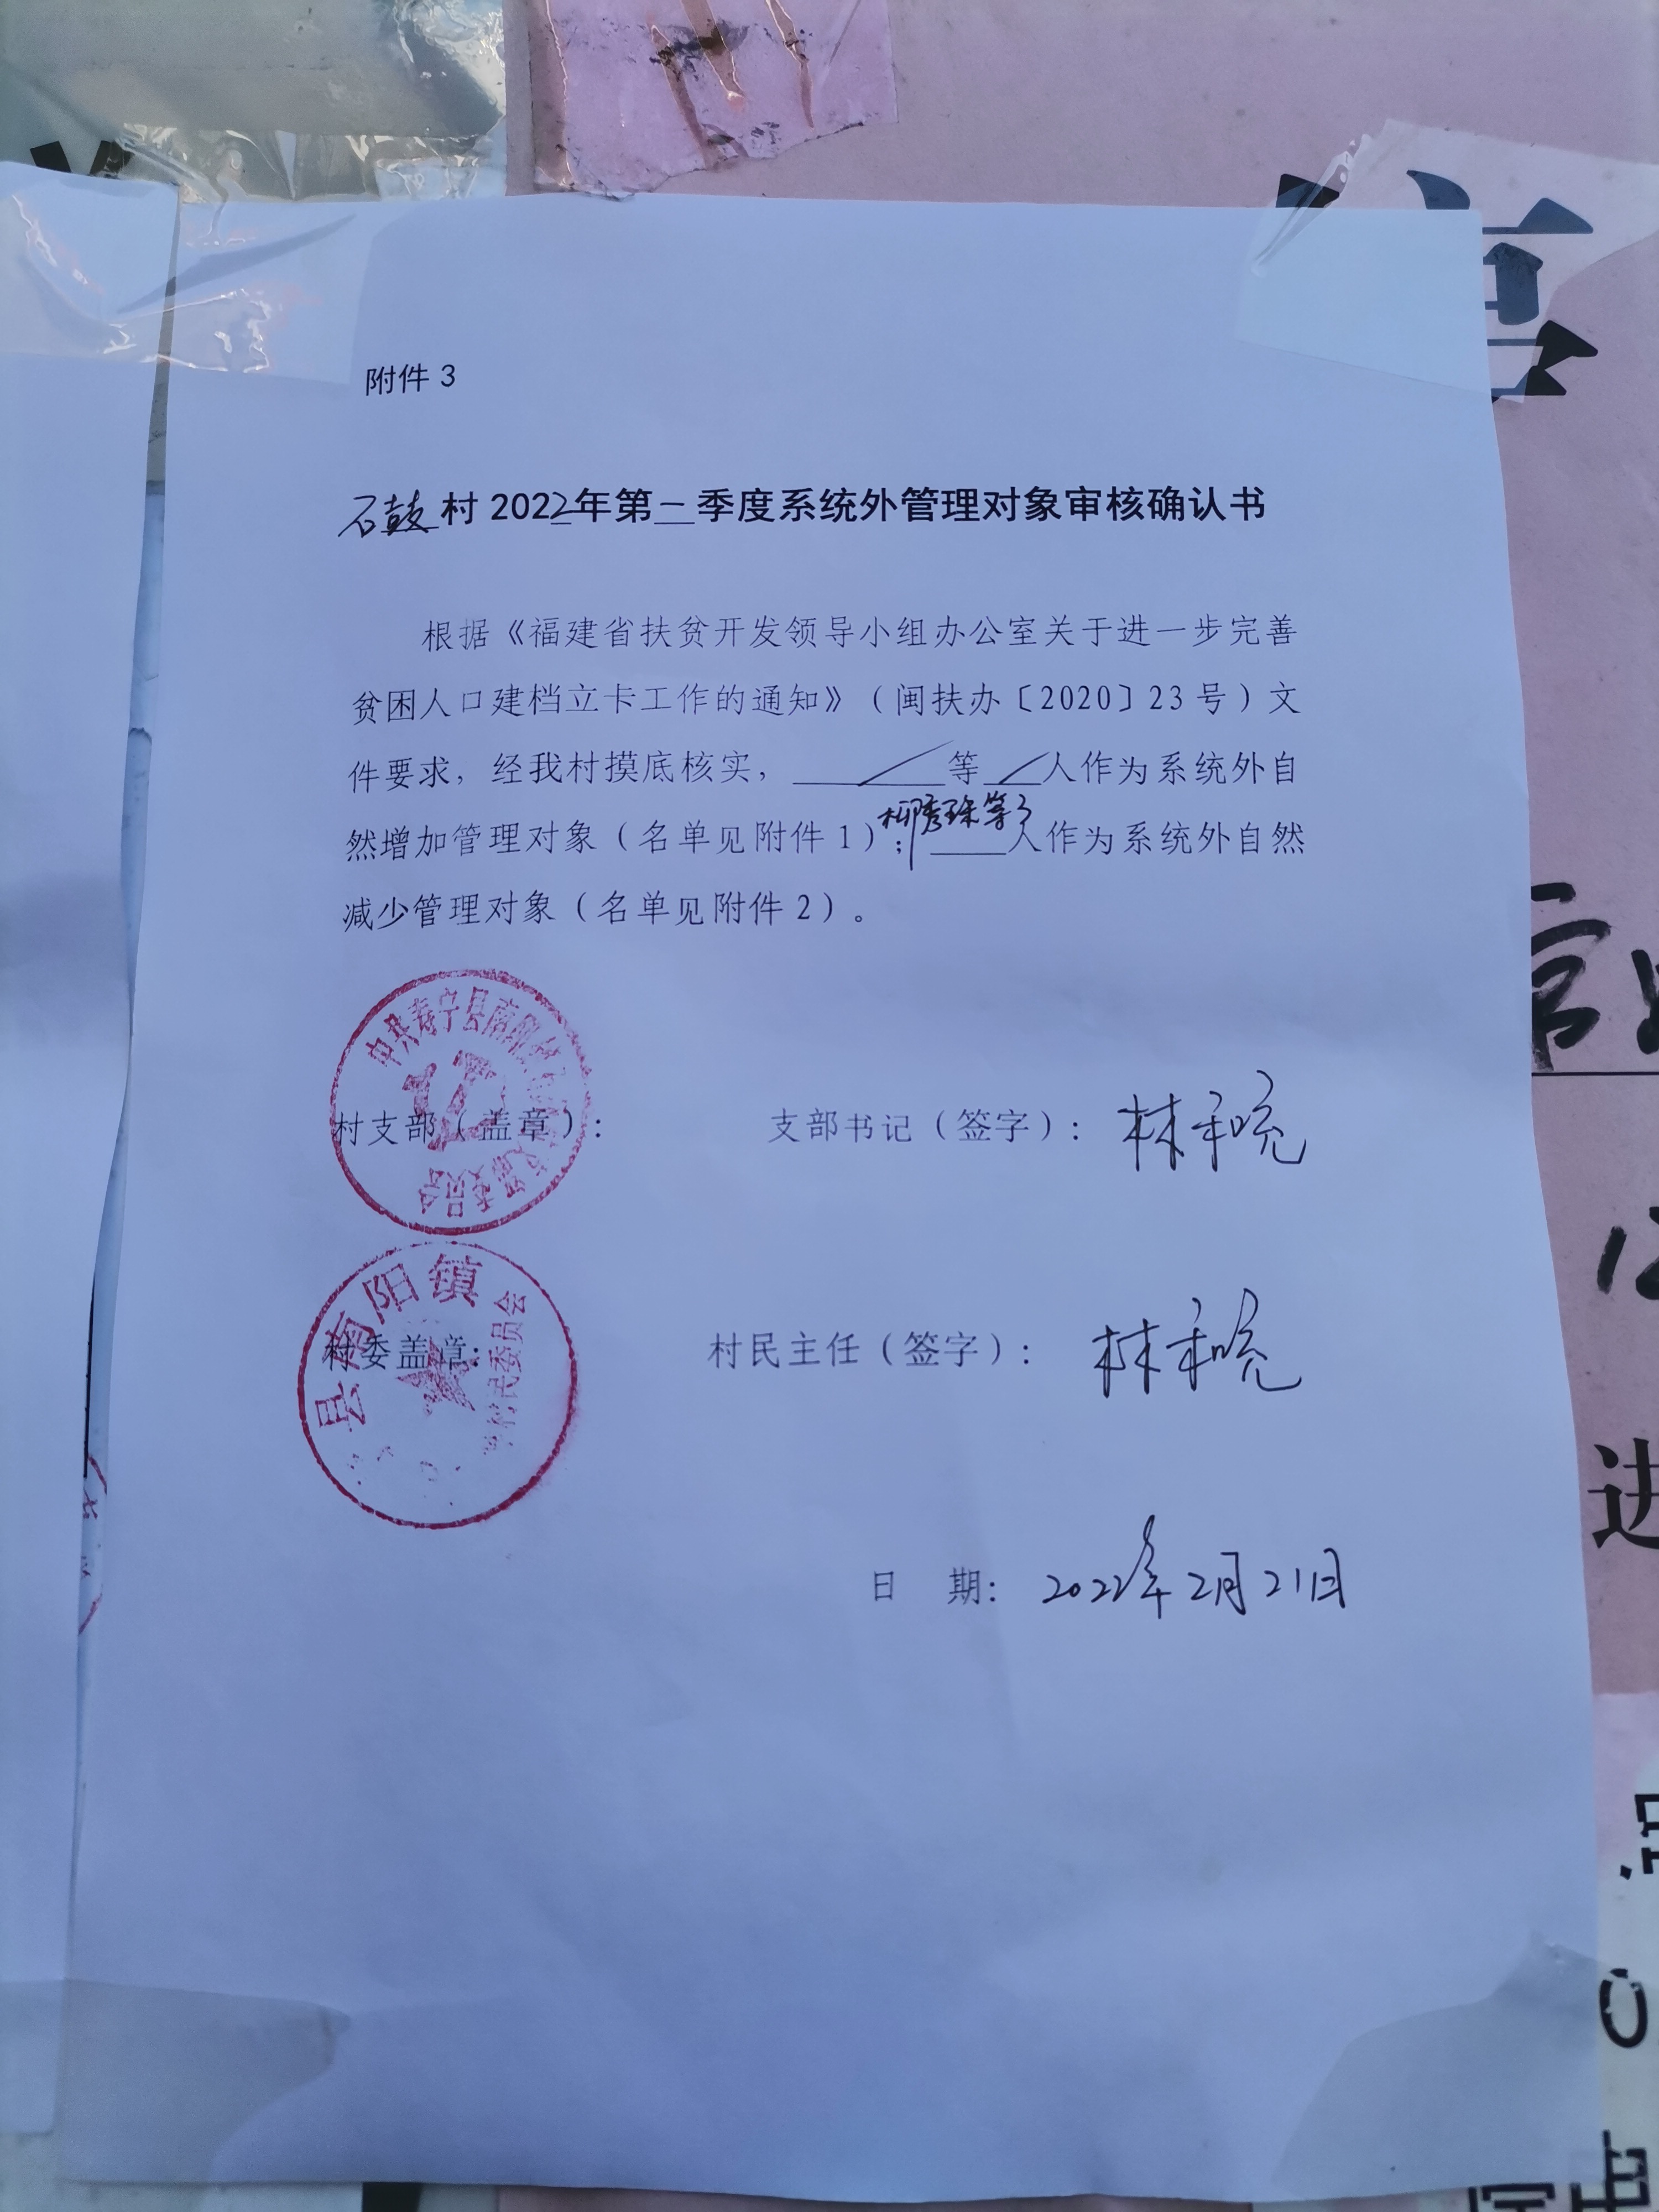 附件 3
石鼓村 2022年第一季度系统外管理对象审核确认书
根据《福建省扶贫开发领导小组办公室关于进一步完善
贫困人口建档立卡工作的通知》（闽扶办〔2020〕23 号）文
件要求，经我村摸底核实，等人作为系统外自
柳秀珠等3
然增加管理对象（名单见附件 1）；人作为系统外自然
减少管理对象（名单见附件 2）。
中共寿宁县南阳
支部委员会
村支部（盖章）：
支部书记（签字）：
县南阳镇
村民委员会
村委盖章：
村民主任（签字）：
日 期： 2022年2月21日
进